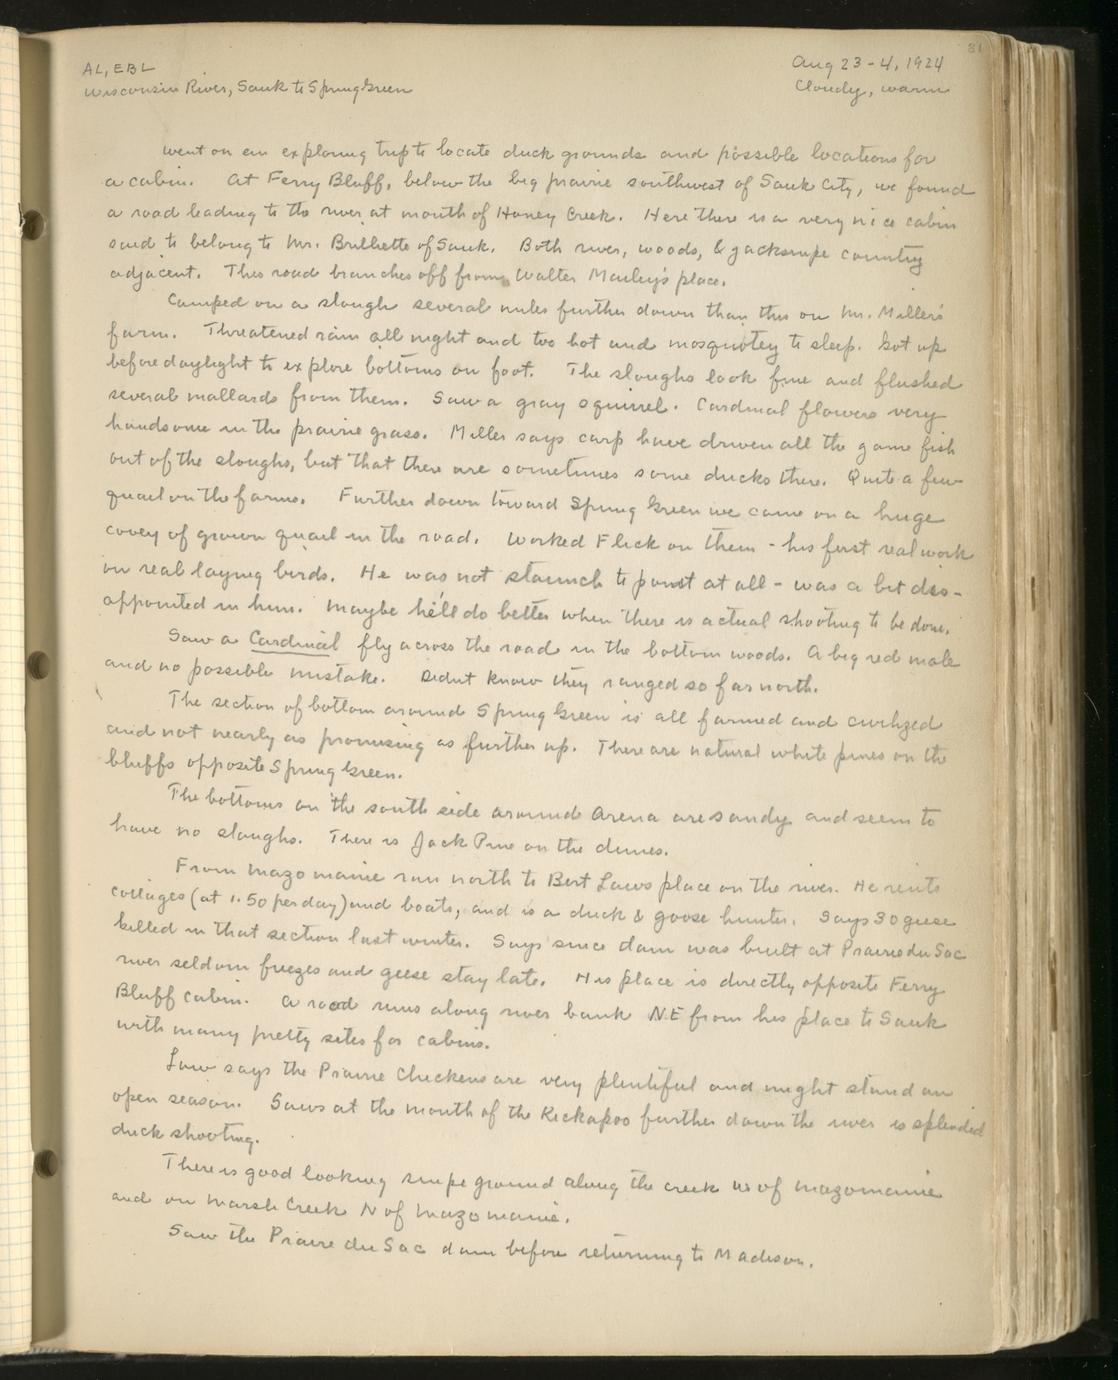 81
AL, EBL
Wisconsin River, Sauk to Spring Green
Aug 23-4, 1924
Cloudy, warm
Went on an exploring trip to locate duck grounds and possible locations for
a cabin. At Ferry Bluff, below the big prairie southwest of Sauk City, we found
a road leading to the river at mouth of Honey Creek. Here there is a very nice cabin
said to belong to Mr. of Sauk. Both river, woods, & jacksnipe country
adjacent. This road branches off from Walter place.
Camped on a slough several miles further down than this on Mr. Miller's
farm. Threatened rain all night and too hot and mosquitoey to sleep. Got up
before daylight to explore bottoms on foot. The sloughs look fine and flushed
several mallards from them. Saw a gray squirrel. Cardinal flowers very
handsome in the prairie grass. Miller says carp have driven all the game fish
out of the sloughs, but that there are sometimes some ducks there. Quite a few
quail on the farms. Further down toward Spring Green we came on a huge
covey of grown quail in the road. Worked Flick on them - his first real work
on real laying birds. He was not staunch to point at all - was a bit dis-
appointed in him. Maybe he'll do better when there is actual shooting to be done.
Saw a Cardinal fly across the road in the bottom woods. A big red male
and no possible mistake. Didnt know they ranged so far north.
The section of bottom around Spring Green is all farmed and civilized
and not nearly as promising as further up. There are natural white pines on the
bluffs opposite Spring Green.
The bottoms on the south side around Arena are sandy and seem to
have no sloughs. There is Jack Pine on the dunes.
From Mazomanie ran north to Bert Laws place on the river. He rents
cottages (at 1.50 per day) and boats, and is a duck & goose hunter. Says 30 geese
killed in that section last winter. Says since dam was built at Prairie du Sac
river seldom freezes and geese stay late. His place is directly opposite Ferry
Bluff cabin. A road runs along river bank NE from his place to Sauk
with many pretty sites for cabins.
Law says the Prairie Chickens are very plentiful and might stand an
open season. Says at the mouth of the Kickapoo further down the river is splendid
duck shooting.
There is good looking snipe ground along the creek W of Mazomanie
and on Marsh Creek N of Mazomanie.
Saw the Prairie du Sac dam before returning to Madison.